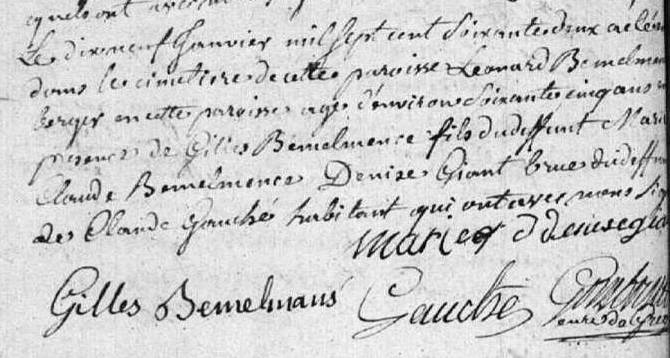 quels ont avec
Le dix neuf Janvier mil sept cent soixante deux a été
dans le cimetiere de cette paroisse Leonard Bemelmen
berger en cette paroisse agé d'environ soixante cinq ans
presence de Gilles Bemelmence fils du deffunt Mari
Claude Bemelmence Denise Giant brue du deffun
de Claude Gauché habitant qui ont avec nous si
marie d denise
Gilles Bemelmans Gauche